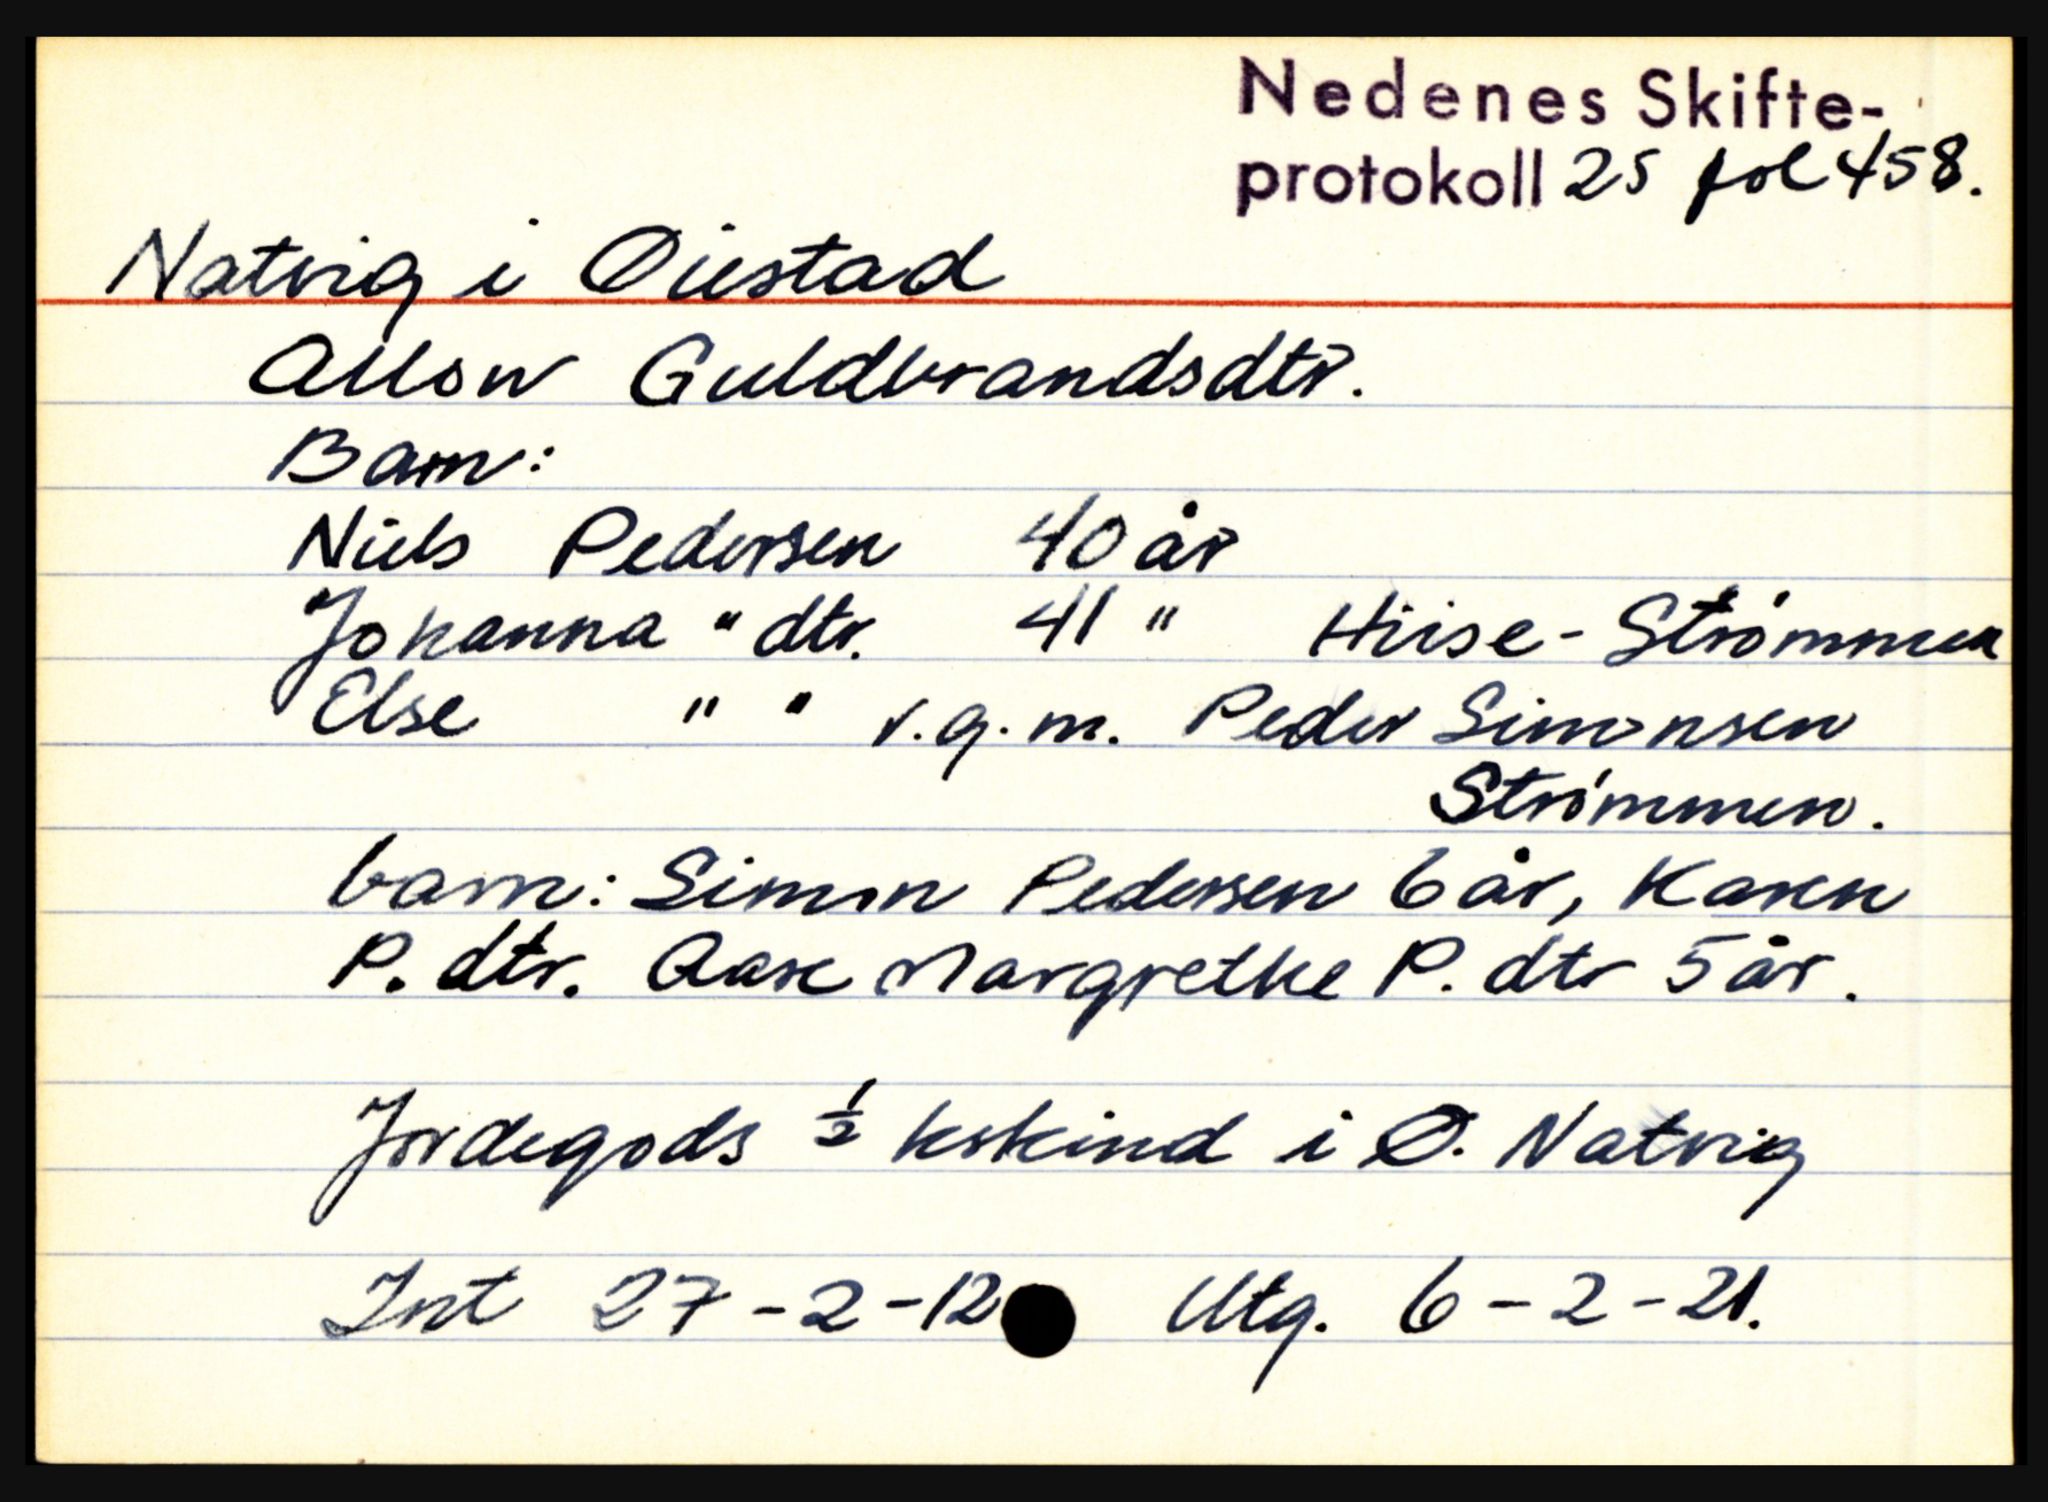 Nedenes Skifte-
protokoll 25 fol 458.
Natvig i Øiestad
Allow Guldbrandsdtr.
Barn:
Niels Pedersen 40 år
Johanna " dtr. 41 " Hiise - Strømmen
Else " " v.g.m. Peder Simonsen
Strømmen.
barn: Simon Pedersen 6 år, Karen
P. dtr. Aase Margrethe P. dtr 5 år.
Jordegods ½ kskind i Ø. Natvig
Int 27-2-12 Utg. 6-2-21.